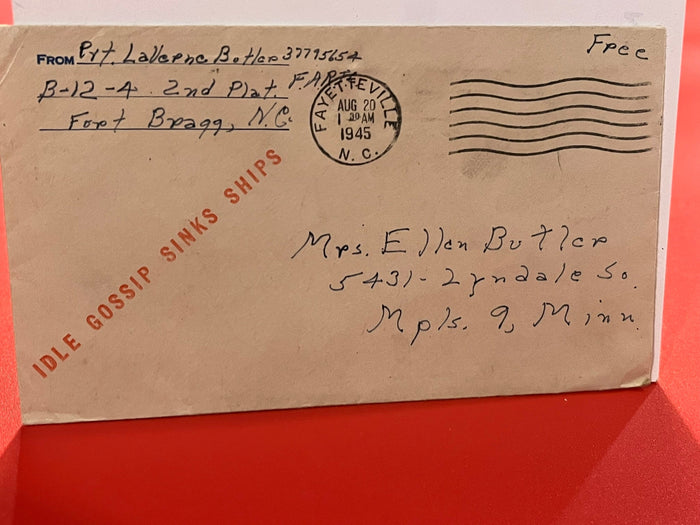 FROM Pvt LaVerne Butler 37795654
Free
B-12-4 2nd Plat. F.A.R.T.C.
Fort Bragg, N.C.
FAYETTEVILLE
AUG 20
1 30 AM
1945
N. C.
IDLE GOSSIP SINKS SHIPS
Mrs. Ellen Butler
5431- Lyndale So.
Mpls. 9, Minn.